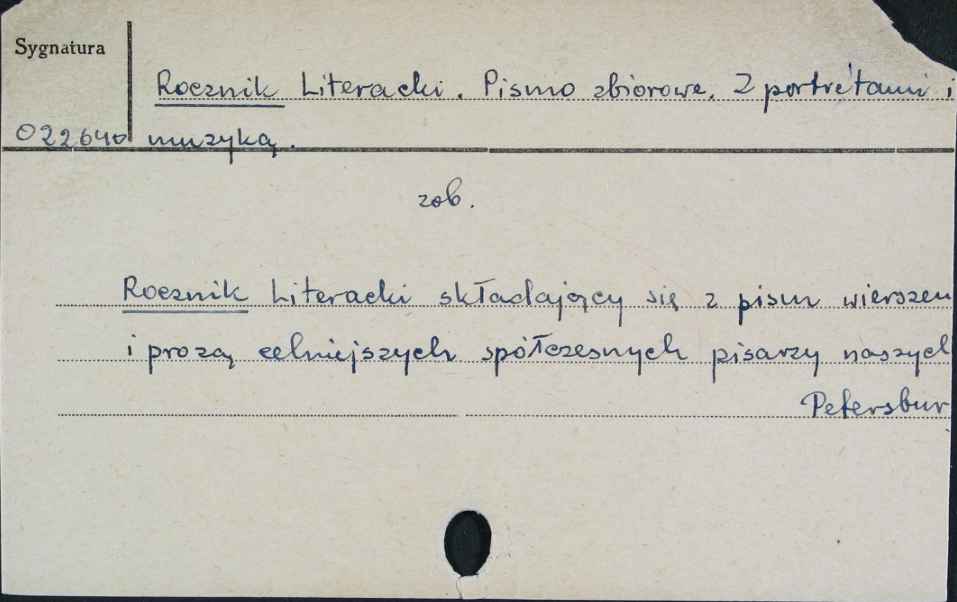 Sygnatura
Rocznik Literacki. Pismo zbiorowe. Z portretami i
022640 muzyką.
zob.
Rocznik Literacki składający się z pism wierszem
i prozą celniejszych spółczesnych pisarzy naszych
Petersbur